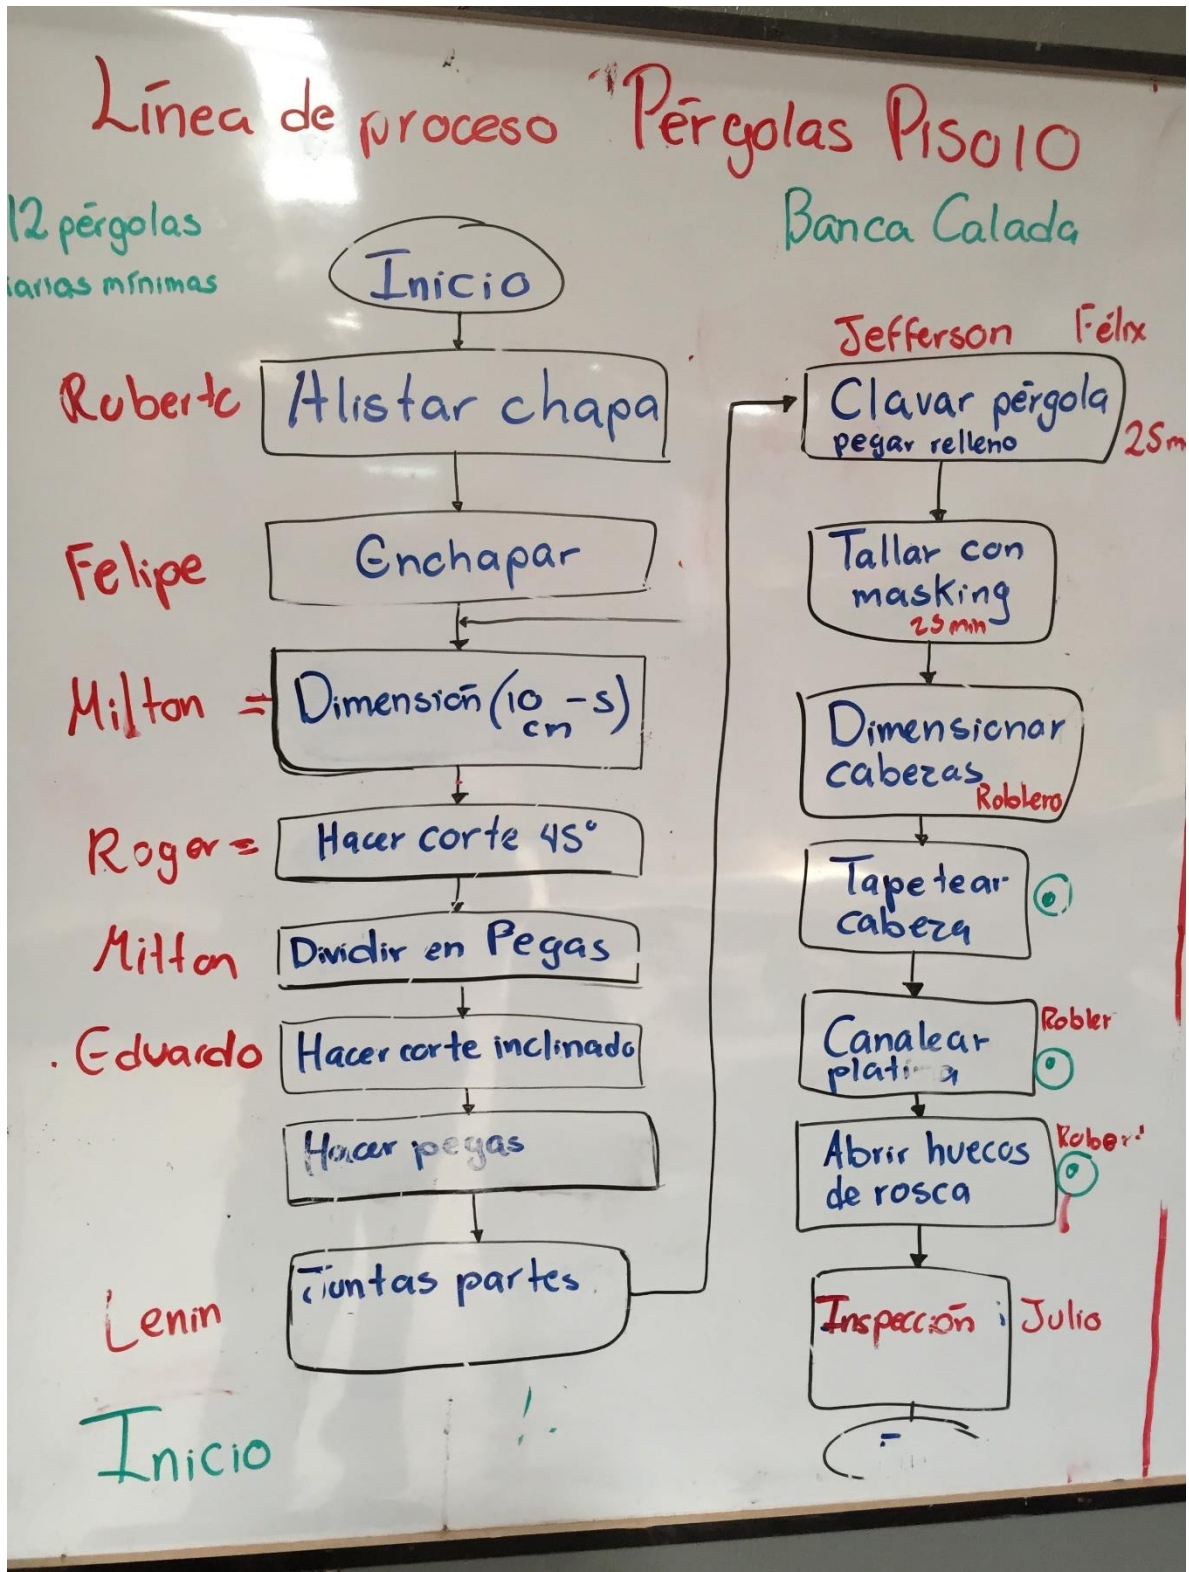 Línea de proceso "Pérgolas Piso10
12 pérgolas
mínimas
Banca Calada
Inicio
Roberto
Alistar chapa
Felipe
Enchapar
Milton =
Dimensión (10 -s)
cm
Roger =
Hacer corte 45°
Milton
Dividir en Pegas
Eduardo
Hacer corte inclinado
Hacer pegas
Lenin
Juntas partes
Inicio
Jefferson Félix
Clavar pérgola
pegar relleno
25m
Tallar con
masking
25 min
Dimensionar
cabezas
Roblero
Tapetear
cabeza
Canalear
platina
Robler
Abrir huecos
de rosca
Rober
Inspección : Julio